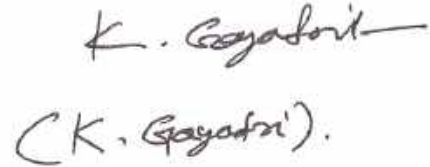 K. Gayatri
(K. Gayatri).